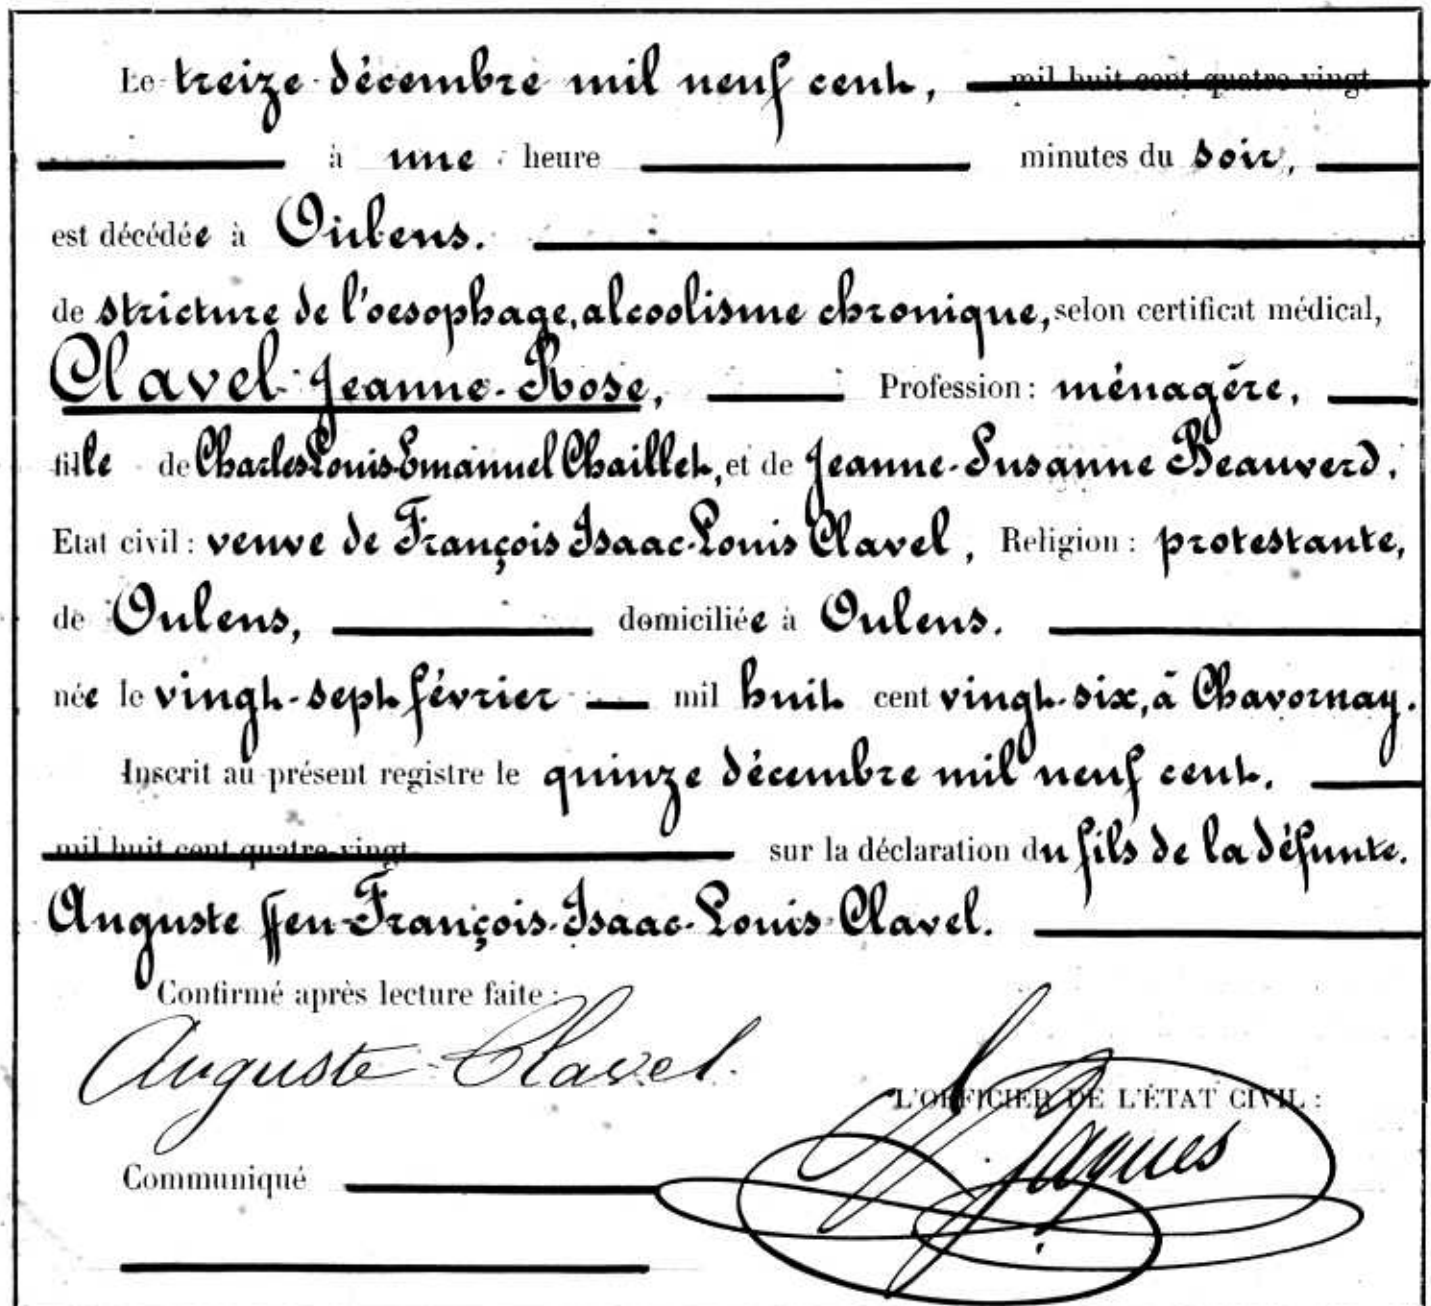 Le treize décembre mil neuf cent, mil huit cent quatre-vingt
à une heure minutes du soir,
est décédée à Oulens.
de stricture de l'oesophage, alcoolisme chronique, selon certificat médical,
Clavel Jeanne-Rose, Profession : ménagère,
fille de Charles Louis Emanuel Chaillet, et de Jeanne-Susanne Beauverd,
Etat civil : veuve de François Isaac-Louis Clavel, Religion : protestante,
de Oulens, domiciliée à Oulens.
née le vingt-sept février mil huit cent vingt-six, à Chavornay.
Inscrit au présent registre le quinze décembre mil neuf cent.
mil huit cent quatre-vingt sur la déclaration du fils de la défunte.
Auguste ffeu François-Isaac-Louis Clavel.
Confirmé après lecture faite :
Auguste Clavel.
L'OFFICIER DE L'ÉTAT CIVIL :
Jaques
Communiqué